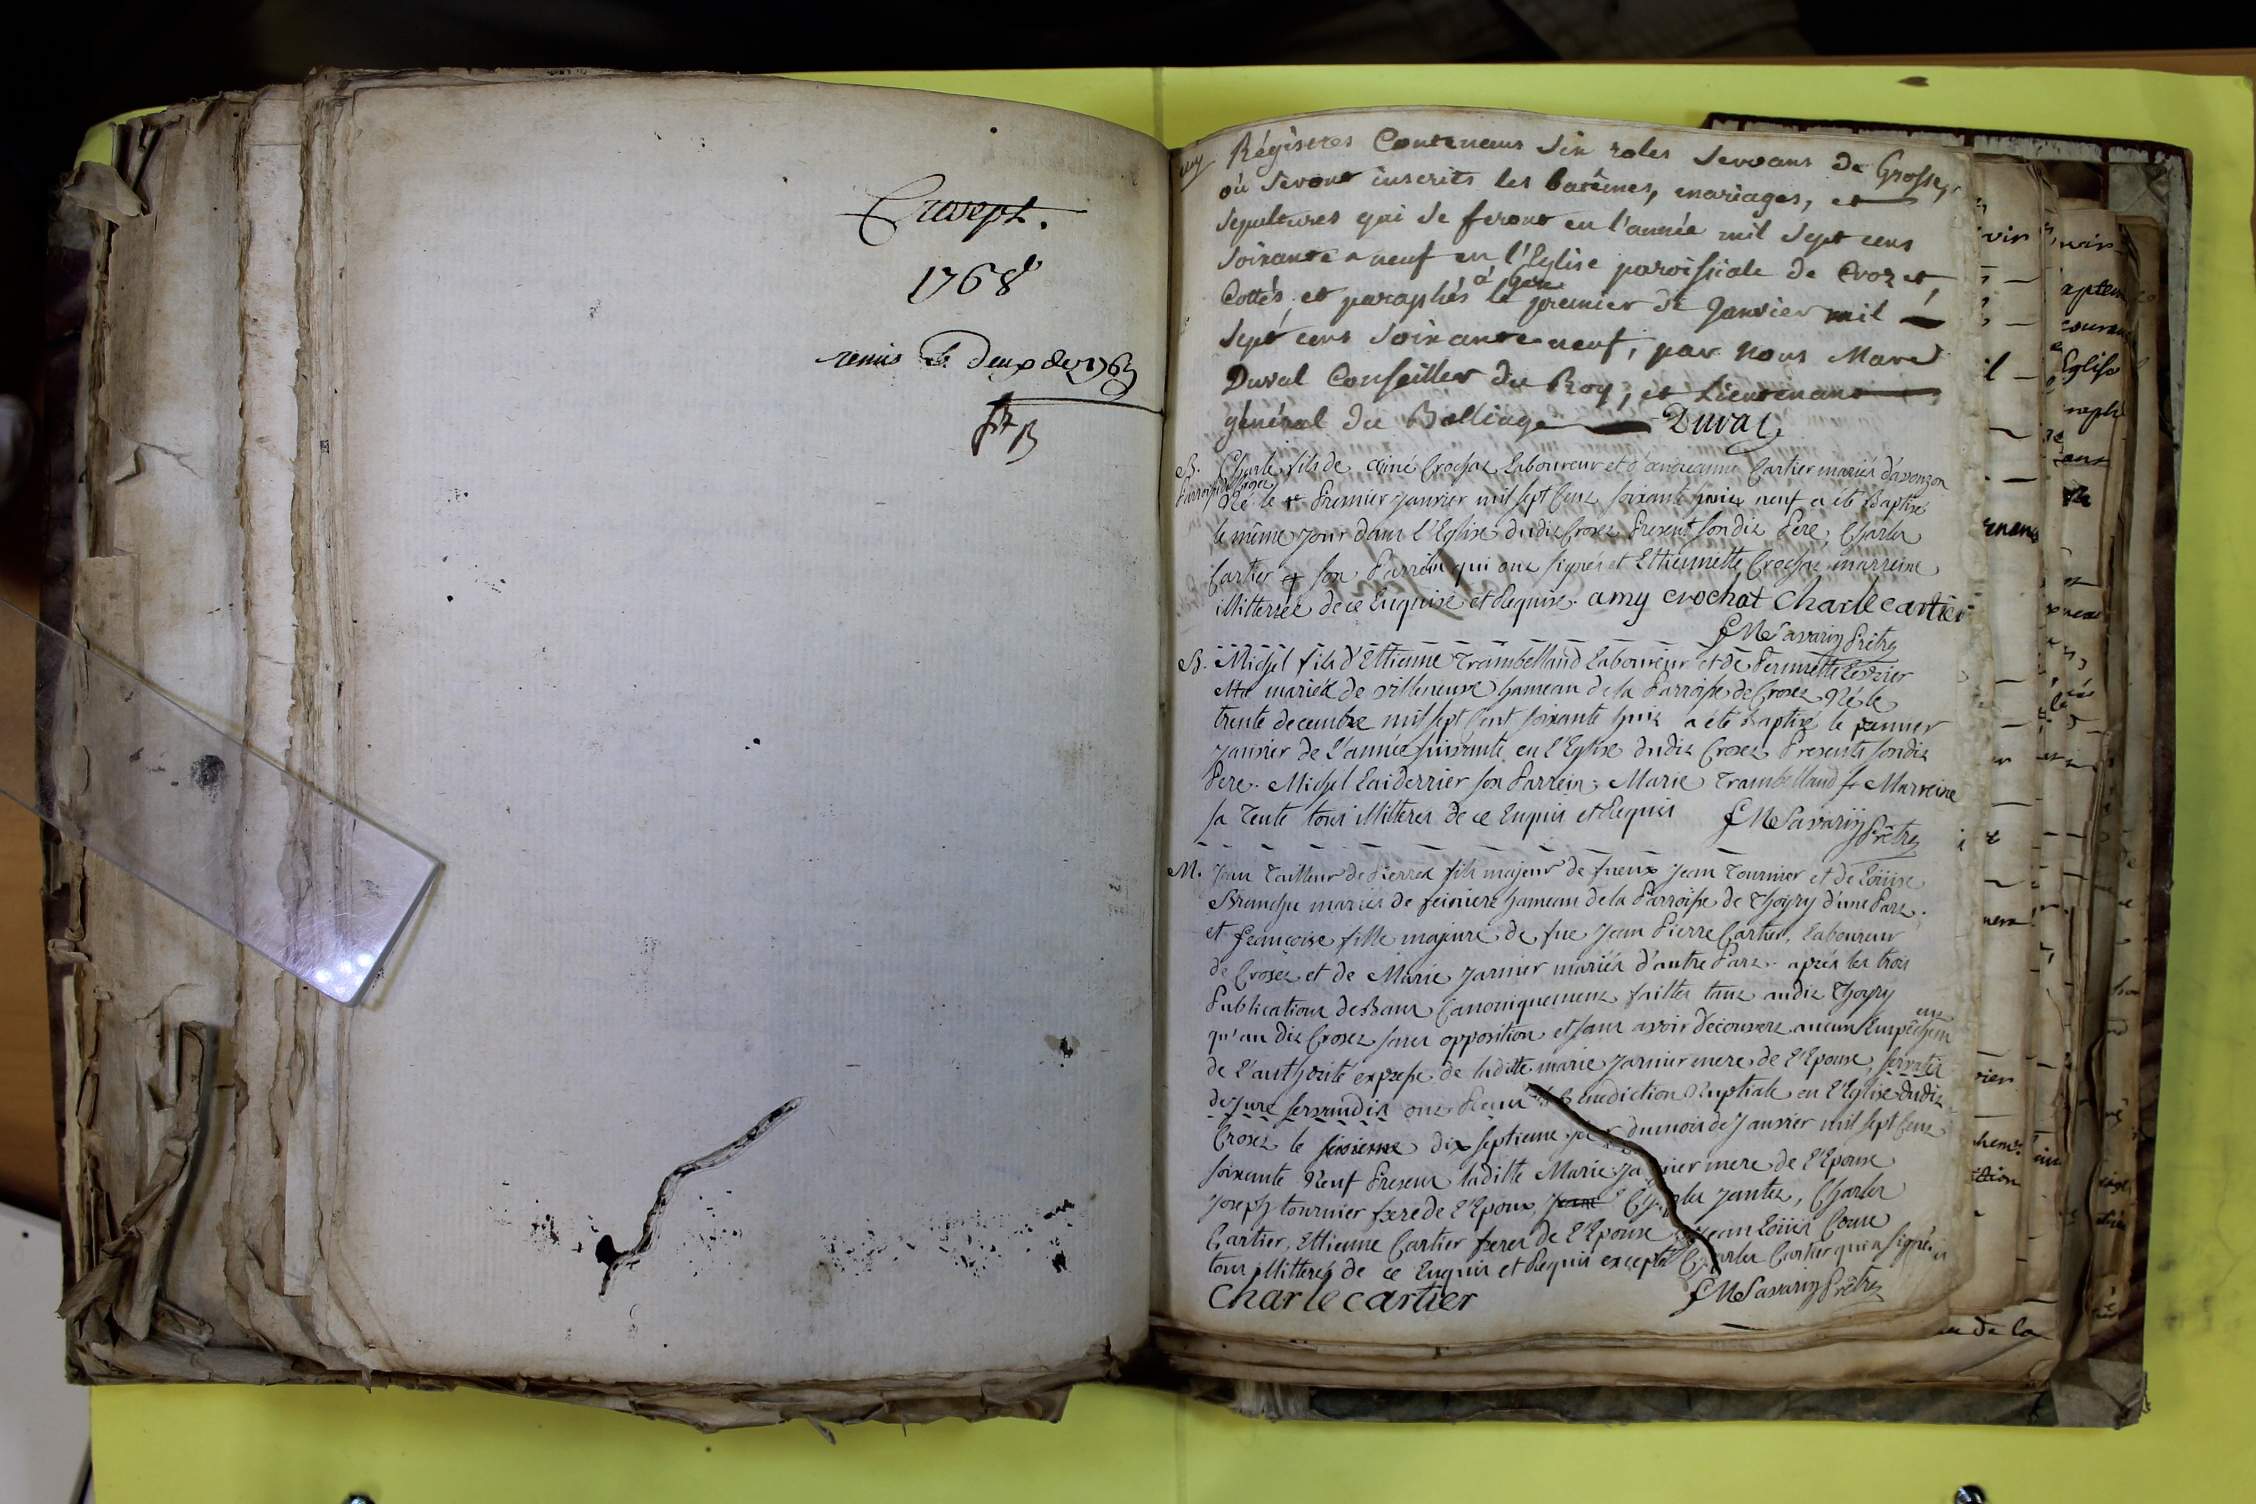 1768
remis le deux 1769
Régistres Contenans six roles servans de Grosse,
où seront inscrits les batêmes, mariages, et
sepultures qui se feront en l'année mil sept cens
soixante-neuf en l'Eglise paroissiale de Crozet,
Cottés, et paraphés à Gex le premier de Janvier mil
sept cens soixante-neuf, par nous Marc
Duval Conseiller du Roy, et Lieutenant
général du Balliage Duval
B. Charle fils de Crochat Laboureur et d' Cartier mariés d'avouzon
Né le Premier janvier mil sept Cent soixante neuf a été Baptisé
le même jour dans l'Eglise dudit Crozet Present sondit Pere, Charles
Cartier son Parrein qui ont signés et Ettiennette Crochat marreine
illitterée de ce Enquise et Requise. amy crochat Charle cartier
Savarin Prêtre
B. Michel fils d'Ettienne Trambelland Laboureur et de Pernnette
mariés de Villeneuve hameau de la Parroisse de Crozet Né le
trente decembre mil sept Cent soixante huit a été Baptisé le premier
janvier de L'année suivante en L'Eglise dudit Crozet Presents sondit
Pere. Michel Laiderrier son Parrein, Marie Trambelland sa Marreine
sa Tente tous illitteres de ce Enquis et Requis Savarin Prêtre
M. Jean Tailleur de Pierres fils majeur de fueux Jean Tournier et de Loüise
Brunche mariés de feiniere hameau de la Parroisse de Thoyry d'une Part.
et francoise fille majeure de fue Jean Pierre Cartier, Laboureur
de Crozet et de Marie Jarnier mariés d'autre Part. aprés les trois
Publications de Bans Canoniquement faittes tant audit Thoyry
qu'au dit Crozet sans opposition et sans avoir découvert aucun Empêchem ent
de L'authorité expresse de laditte marie Jarnier mere de L'Epouse, servatis
de jure servandis ont Receu la Benediction Nuptiale en L'Eglise dudit
Crozet le dix septieme jour du mois de Janvier mil sept Cent
soixante Neuf Presens laditte Marie Jarnier mere de L'Epouse
Joseph tournier frere de L'Epoux, Charles Jantet, Charles
Cartier, Ettienne Cartier freres de L'Epouse Jean Loüis
tous illitterés de ce Enquis et Requis excepté Charles Cartier qui a signé.
Charle cartier Savarin Prêtre